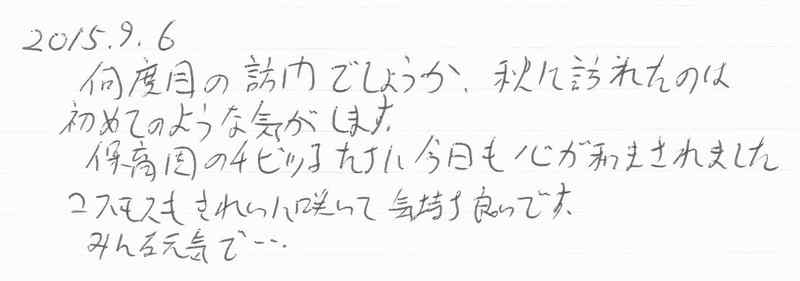 2015.9.6
何度目の訪問でしょうか、秋に訪れたのは
初めてのような気がします。
保育園のチビッ子たちに今日も心が和まされました
コスモスもきれいに咲いて気持ち良いです。
みんな元気で…